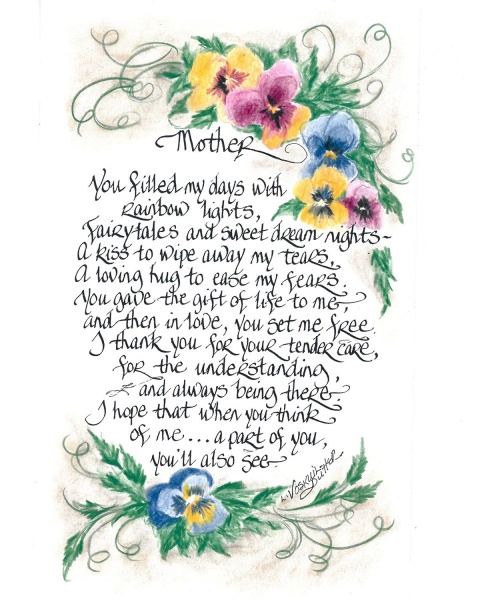 Mother
You filled my days with
rainbow lights,
Fairytales and sweet dream nights-
A kiss to wipe away my tears,
A loving hug to ease my fears.
You gave the gift of life to me,
and then in love, you set me free.
I thank you for your tender care,
for the understanding,
and always being there.
I hope that when you think
of me... a part of you,
you'll also see.